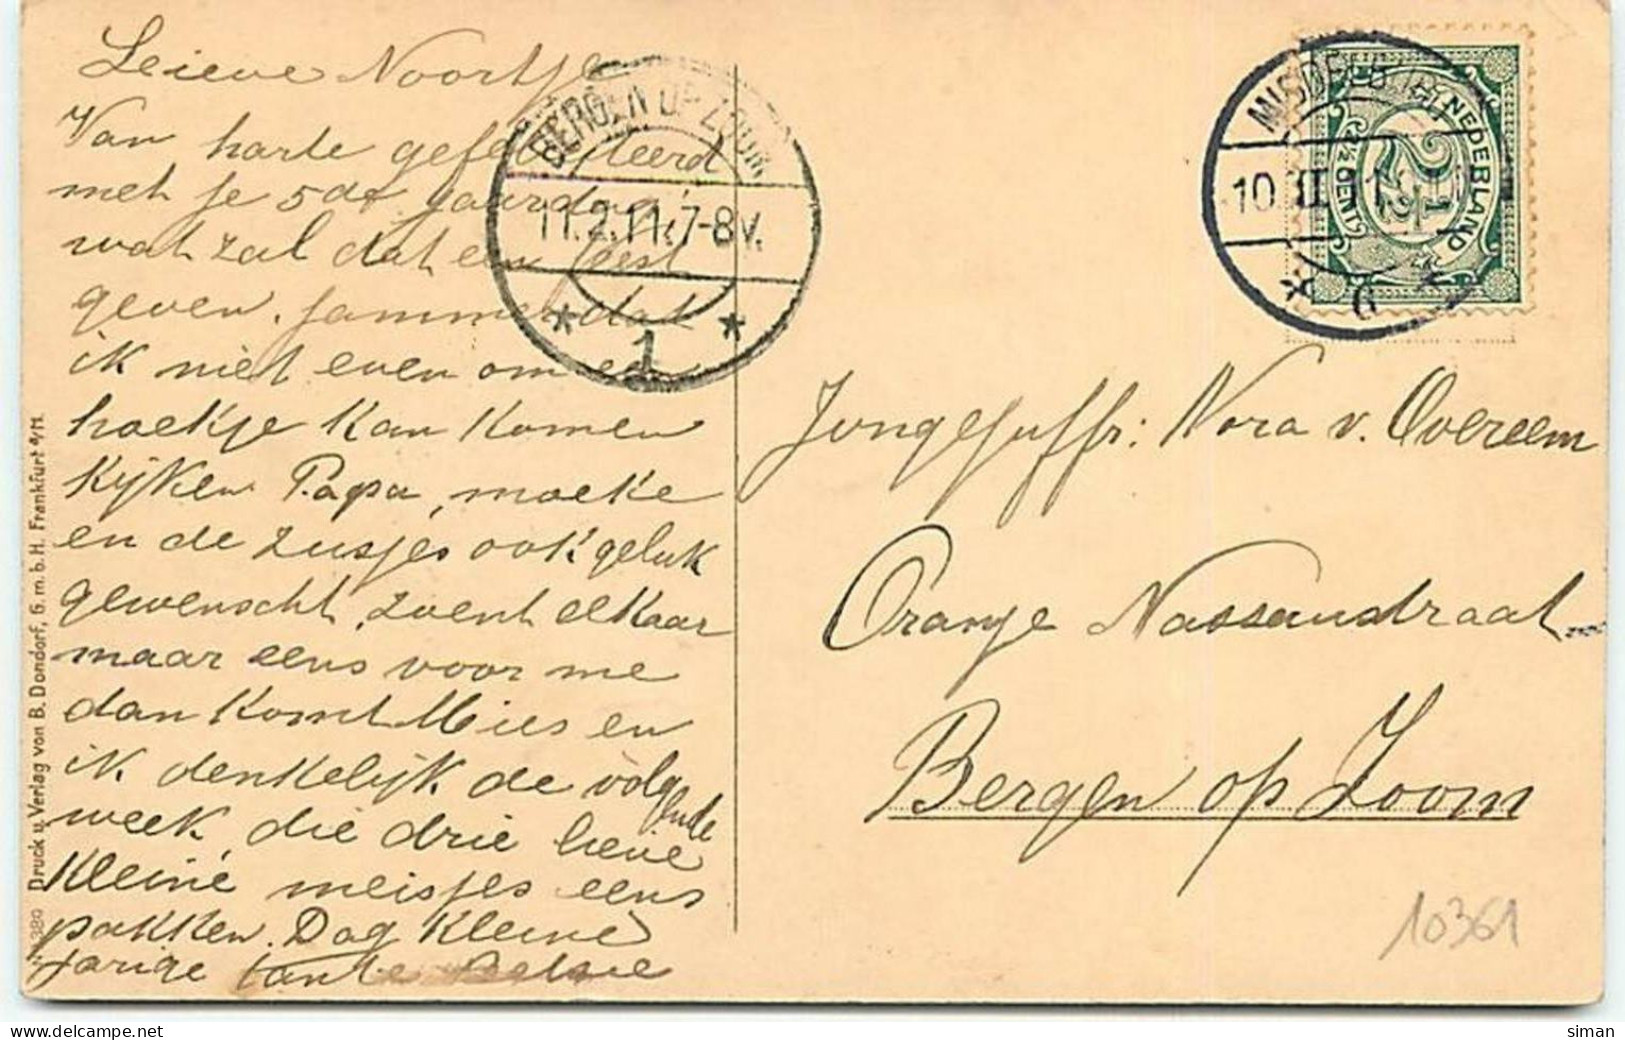 Leieve Noortje
Van harte gefeliciteerd
met je 5de jaardag,
wat zal dat een feest
geven. Jammer dat
ik niet even om een
hoekje kan komen
kijken Papa, moeke
en de zusjes ook geluk
gewenscht, zoent elkaar
maar eens voor me
dan komt Mies en
ik denkelijk de volgende
week, die drie lieve
kleine meisjes eens
pakken. Dag kleine
jarige tante
BERGEN OP ZOOM.
11.2.11.7-8V.
* 1 *
MIDDELB
10 II 11
* 6 *
NEDERLAND
2½
2½ CENT
Jongejuffr: Nora v. Overeem
Oranje Nassaustraat
Bergen op Zoom
10361
Druck u. Verlag von B. Dondorf, G. m. b. H. Frankfurt a/M.
380
siman